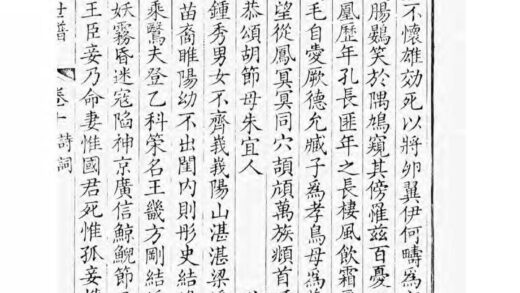 不懷雄効死以將卵翼伊何疇爲
腸鷃笑於隅鳩窺其傍罹茲百憂
凰歷年孔長匪年之長棲風飲霜
毛自愛厥德允臧子爲孝鳥母爲
望從鳳冥冥同穴頡頏萬族頫首
恭頌胡節母朱宜人
鍾秀男女不齊峩峩陽山湛湛梁
苗裔睢陽幼不出閨内則彤史結
乘鷖夫登乙科策名王畿方剛結
妖霧昏迷寇陷神京廣信鯨鯢節
王臣妾乃命妻惟國君死惟孤妾
世譜 卷十 詩詞